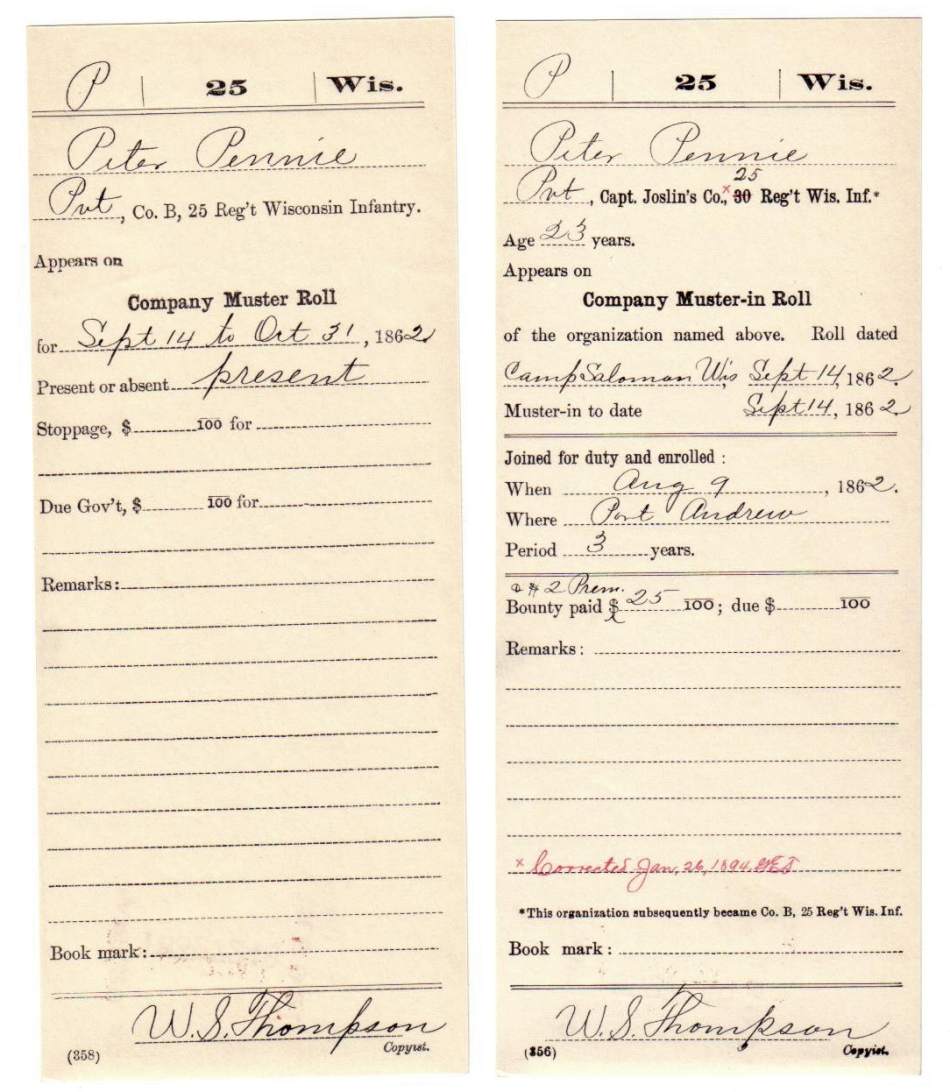 P | 25 | Wis.
Peter Pennie
Pvt, Co. B, 25 Reg't Wisconsin Infantry.
Appears on
Company Muster Roll
for Sept 14 to Oct 31, 1862
Present or absent present
Stoppage, $ 100 for
Due Gov't, $ 100 for
Remarks:
Book mark:
W. S. Thompson
(358) Copyist.
P | 25 | Wis.
Peter Pennie
25
Pvt, Capt. Joslin's Co., x 30 Reg't Wis. Inf.*
Age 23 years.
Appears on
Company Muster-in Roll
of the organization named above. Roll dated
Camp Saloman Wis Sept 14, 1862.
Muster-in to date Sept 14, 1862
Joined for duty and enrolled:
When Aug 9, 1862.
Where Port Andrew
Period 3 years.
& $2 Prem.
Bounty paid $ 25 100; due $ 100
Remarks:
x Corrected Jan, 26, 1894.
*This organization subsequently became Co. B, 25 Reg't Wis. Inf.
Book mark:
W. S. Thompson
(356) Copyist.